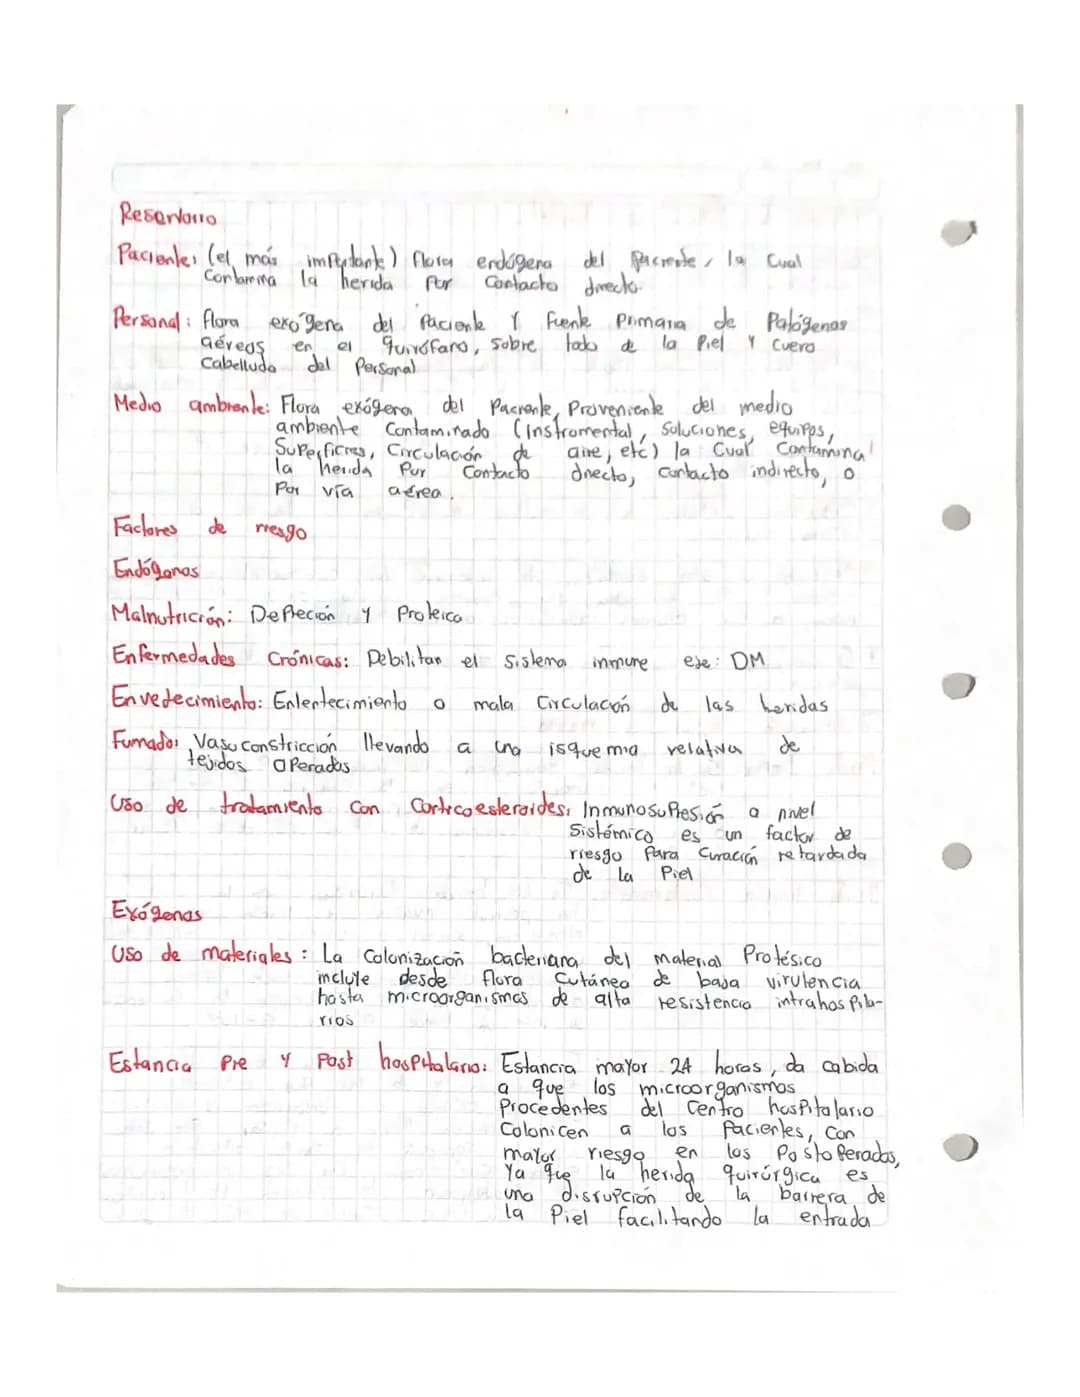 Reservorio
Paciente: (el más importante) flora endógena del paciente, la cual
Contamina la herida Por Contacto directo.
Personal: flora exógena del Paciente y Fuente Primaria de Patógenos
aéreos en el quirófano, sobre todo de la Piel y Cuero
Cabelludo del Personal
Medio ambiente: Flora exógena del Paciente, Proveniente del medio
ambiente Contaminado (Instromental, Soluciones, equipos,
Superficies, Circulación de aire, etc) la Cual Contamina
la herida Por Contacto directo, contacto indirecto, o
Por vía aérea.
Factores de riesgo
Endógenos
Malnutrición: Depleción y Proteica
Enfermedades Crónicas: Debilitan el Sistema inmune eje: DM
Envejecimiento: Enlentecimiento o mala Circulación de las heridas
Fumado: Vasoconstricción llevando a una isquemia relativa de
tejidos Operados
Uso de tratamiento con Corticoesteroides: Inmunosupresión a nivel
Sistémico es un factor de
riesgo Para Curación retardada
de la Piel
Exógenas
Uso de materiales: La Colonización bacteriana del material Protésico
incluye desde flora Cutánea de baja virulencia
hasta microorganismos de alta resistencia intrahospita-
rios
Estancia Pre y Post hospitalario: Estancia mayor 24 horas, da cabida
a que los microorganismos
Procedentes del Centro hospitalario
Colonicen a los Pacientes, con
mayor riesgo en los Postoperados,
Ya que la herida quirúrgica es
una disrupción de la barrera de
la Piel facilitando la entrada